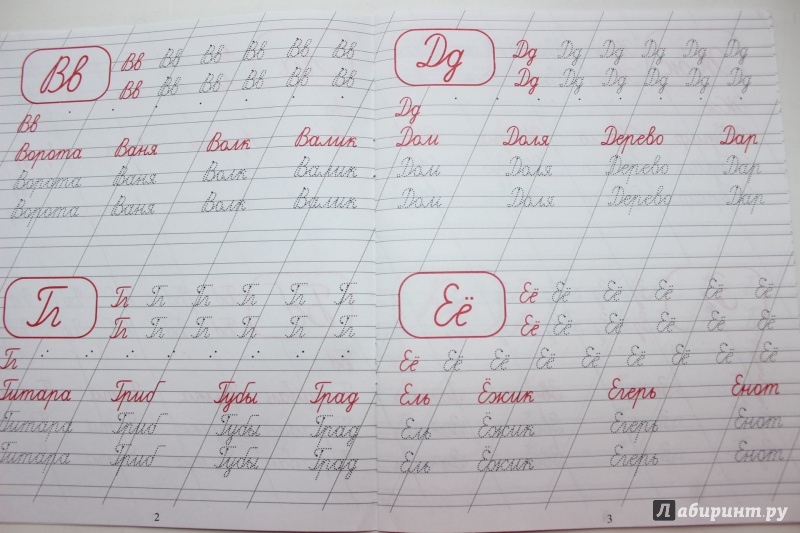 Вв Вв Вв Вв Вв Вв Вв
Вв Вв Вв Вв Вв Вв
Вв
Ворота Ваня Волк Валик
Ворота Ваня Волк Валик
Ворота Ваня Волк Валик
Гг Гг Гг Гг Гг Гг Гг
Гг Гг Гг Гг Гг Гг
Гг
Гитара Гриб Губы Град
Гитара Гриб Губы Град
Гитара Гриб Губы Град
2
Дд Дд Дд Дд Дд Дд Дд
Дд Дд Дд Дд Дд Дд
Дд
Дом Доля Дерево Дар
Дом Доля Дерево Дар
Дом Доля Дерево Дар
Её Её Её Её Её Её Её
Её Её Её Её Её Её
Её Её Её Её Её Её Её Её Её
Ель Ёжик Егерь Енот
Ель Ёжик Егерь Енот
Ель Ёжик Егерь Енот
3
Лабиринт.ру